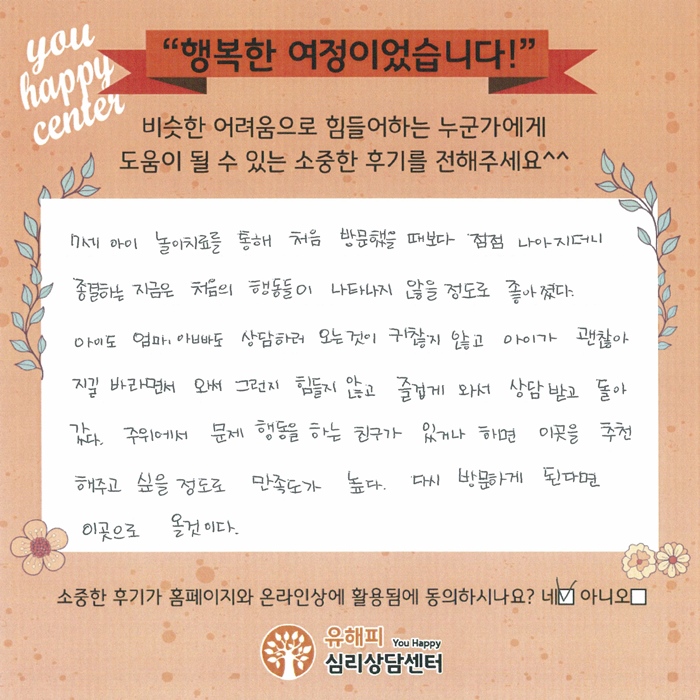 you
happy
center
“행복한 여정이었습니다!”
비슷한 어려움으로 힘들어하는 누군가에게
도움이 될 수 있는 소중한 후기를 전해주세요^^
7세 아이 놀이치료를 통해 처음 방문했을 때보다 점점 나아지더니
종결하는 지금은 처음의 행동들이 나타나지 않을 정도로 좋아졌다.
아이도 엄마, 아빠도 상담하러 오는것이 귀찮지 않고 아이가 괜찮아
지길 바라면서 와서 그런지 힘들지 않고 즐겁게 와서 상담 받고 돌아
갔다. 주위에서 문제 행동을 하는 친구가 있거나 하면 이곳을 추천
해주고 싶을 정도로 만족도가 높다. 다시 방문하게 된다면
이곳으로 올것이다.
소중한 후기가 홈페이지와 온라인상에 활용됨에 동의하시나요? 네☑ 아니오☐
유해피 You Happy
심리상담센터